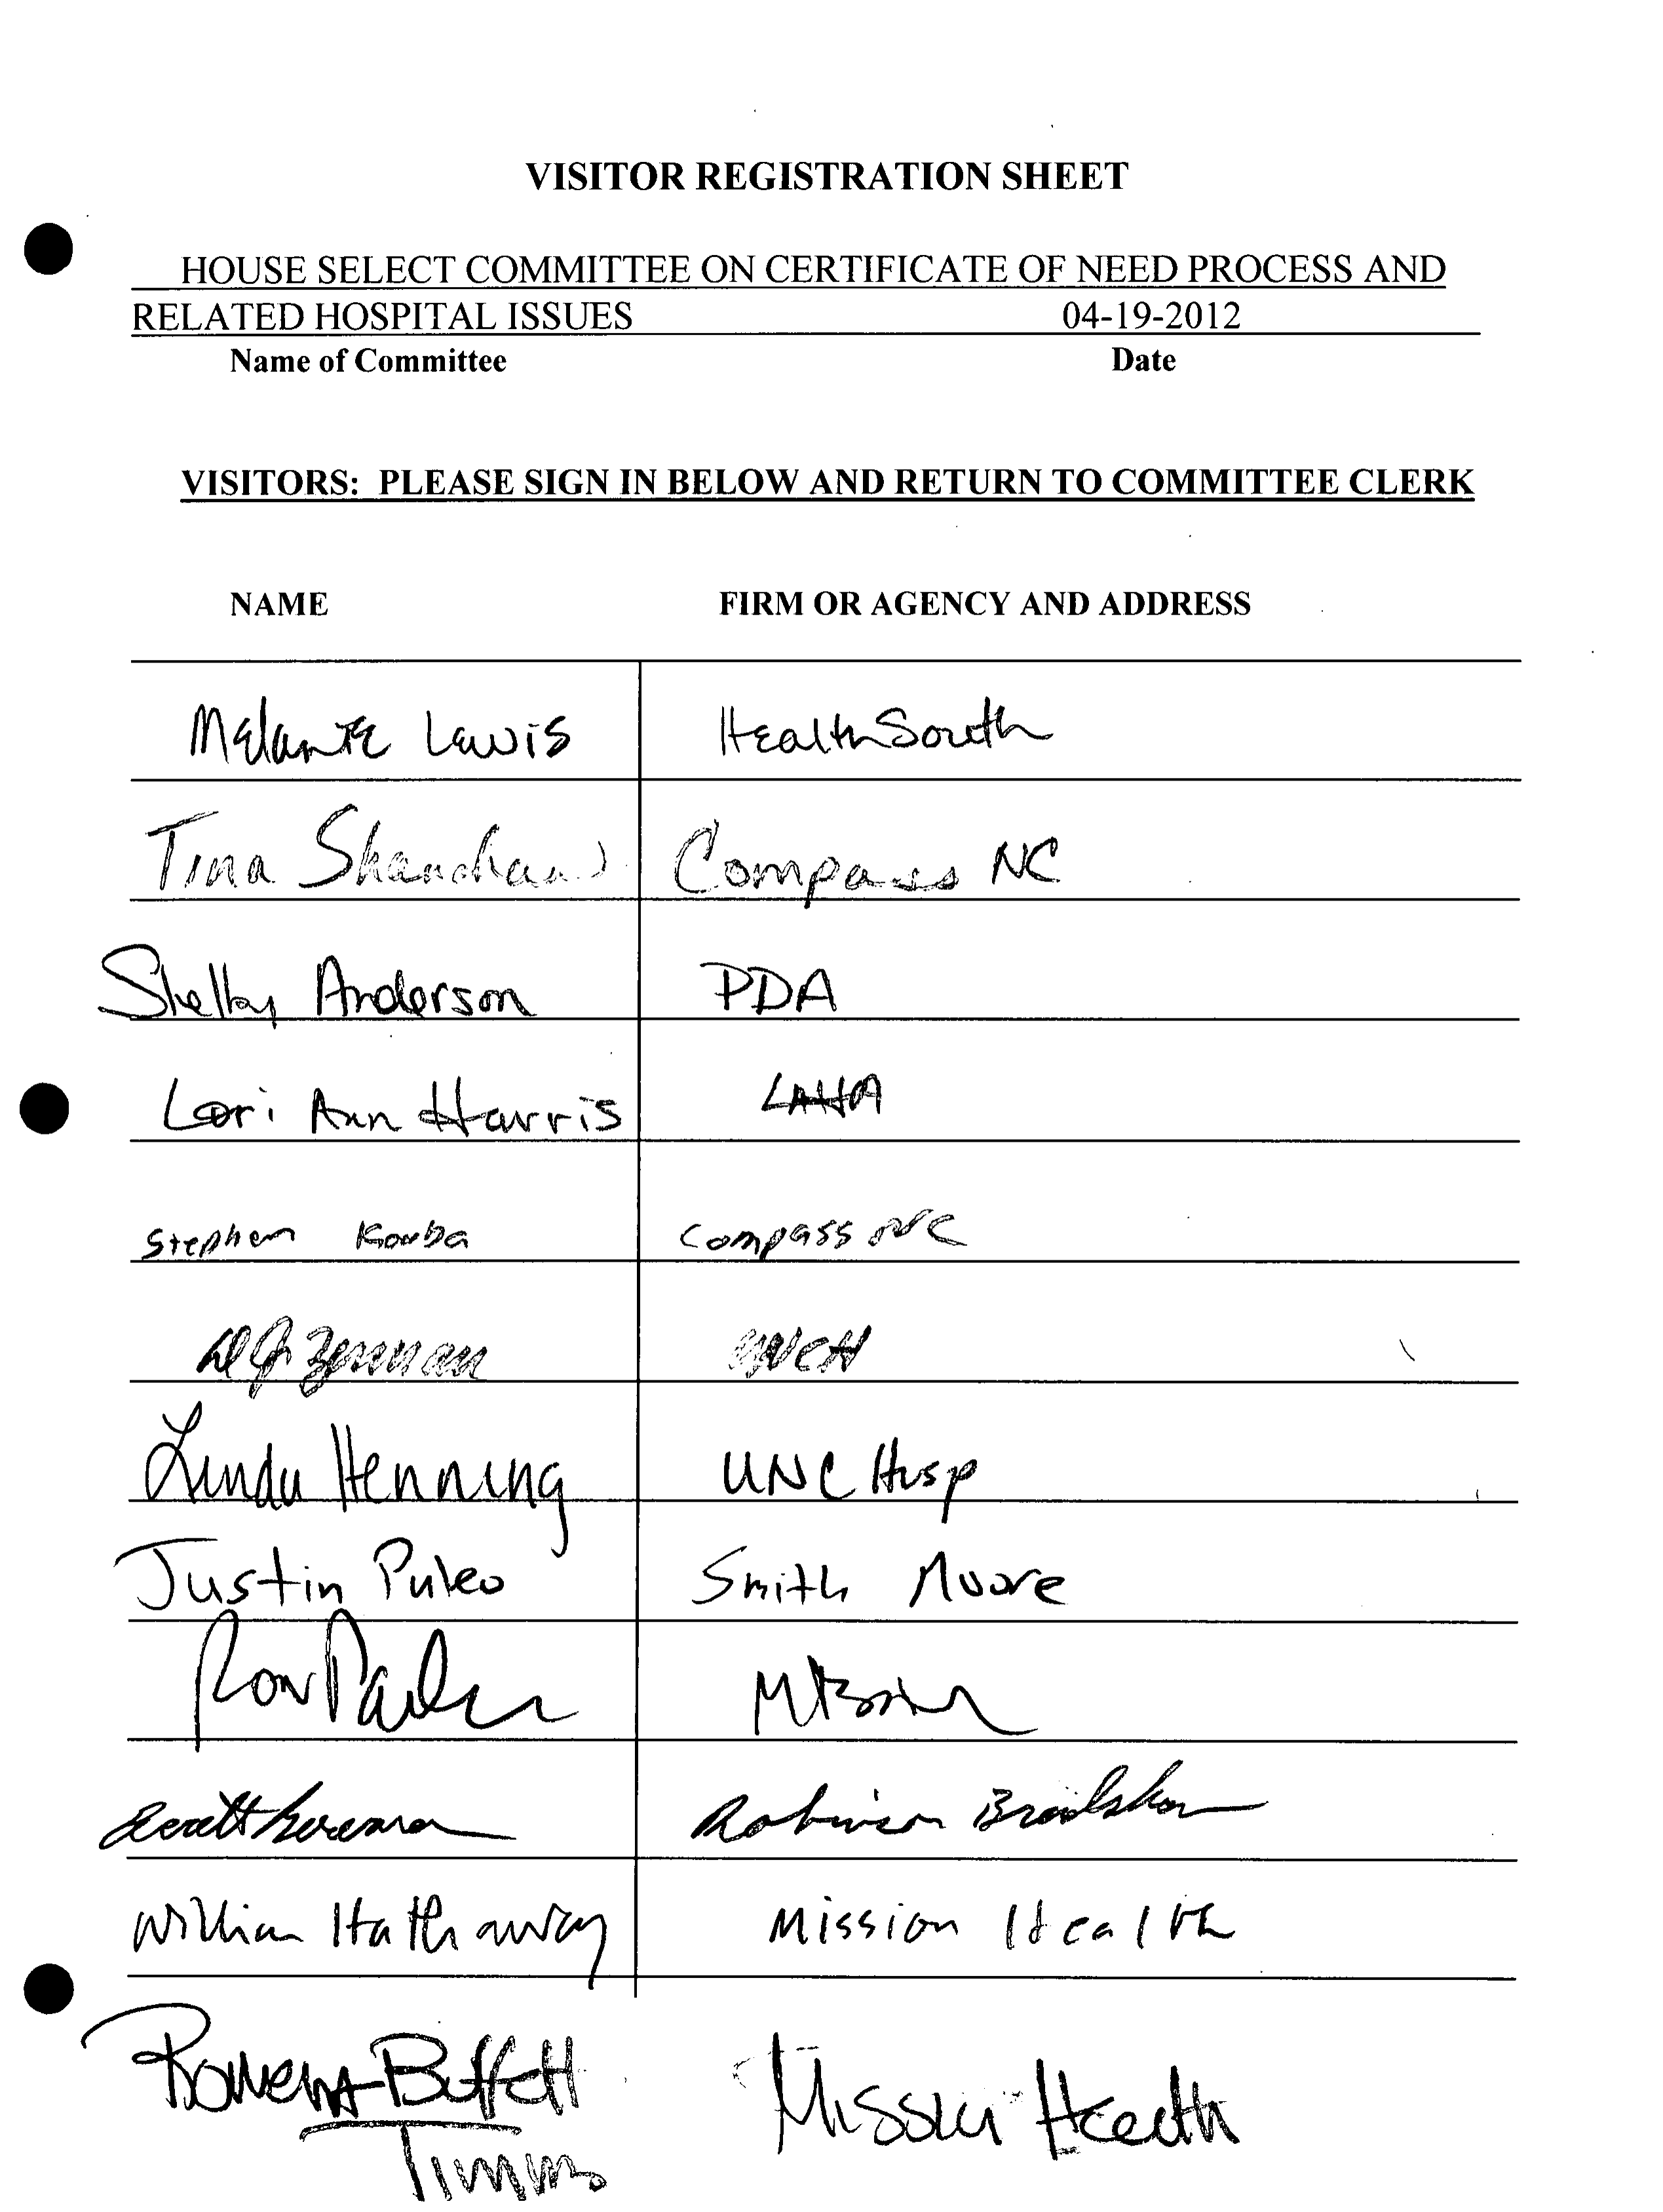 VISITOR REGISTRATION SHEET
HOUSE SELECT COMMITTEE ON CERTIFICATE OF NEED PROCESS AND
RELATED HOSPITAL ISSUES 04-19-2012
Name of Committee Date
VISITORS: PLEASE SIGN IN BELOW AND RETURN TO COMMITTEE CLERK
NAME FIRM OR AGENCY AND ADDRESS
Melanie Lewis HealthSouth
Tina Compass NC
Shelby Anderson PDA
Lori Ann Harris
Stephen Kouba Compass NC
Linda Henning UNC Hosp
Justin Puleo Smith Moore
Ron Parker Mission
Robinson Bradshaw
William Hathaway Mission Health
Rowena Buffett Mission Health
Timms